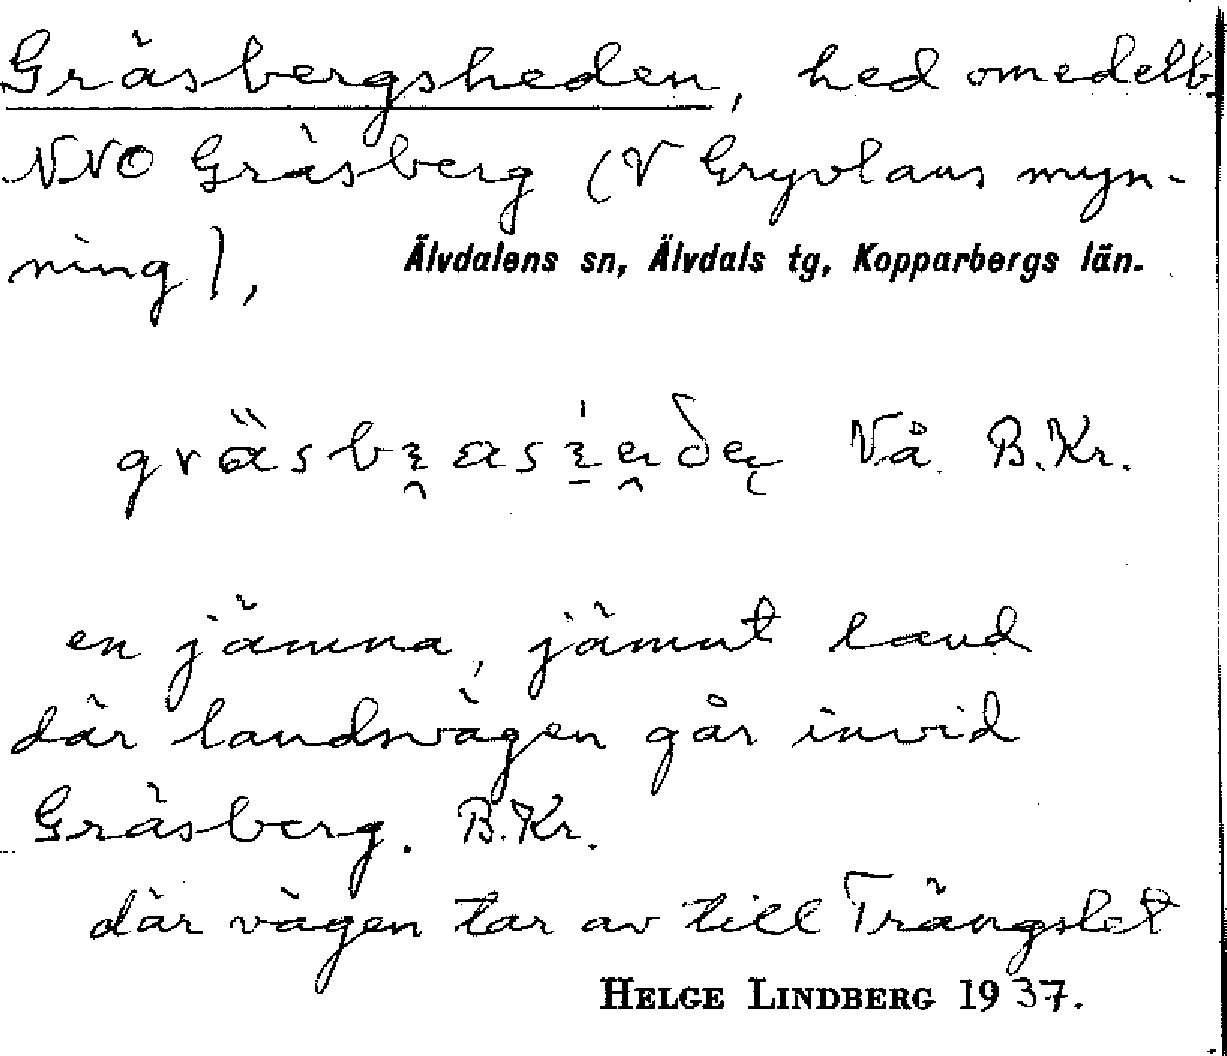 Gräsbergsheden, hed omedelb.
NNO Gräsberg (V Gryvlans myn-
ning), Älvdalens sn, Älvdals tg, Kopparbergs län.
Vå B.Kr.
en jämna, jämnt land
där landsvägen går invid
Gräsberg. B.Kr.
där vägen tar av till Trängslet
HELGE LINDBERG 1937.